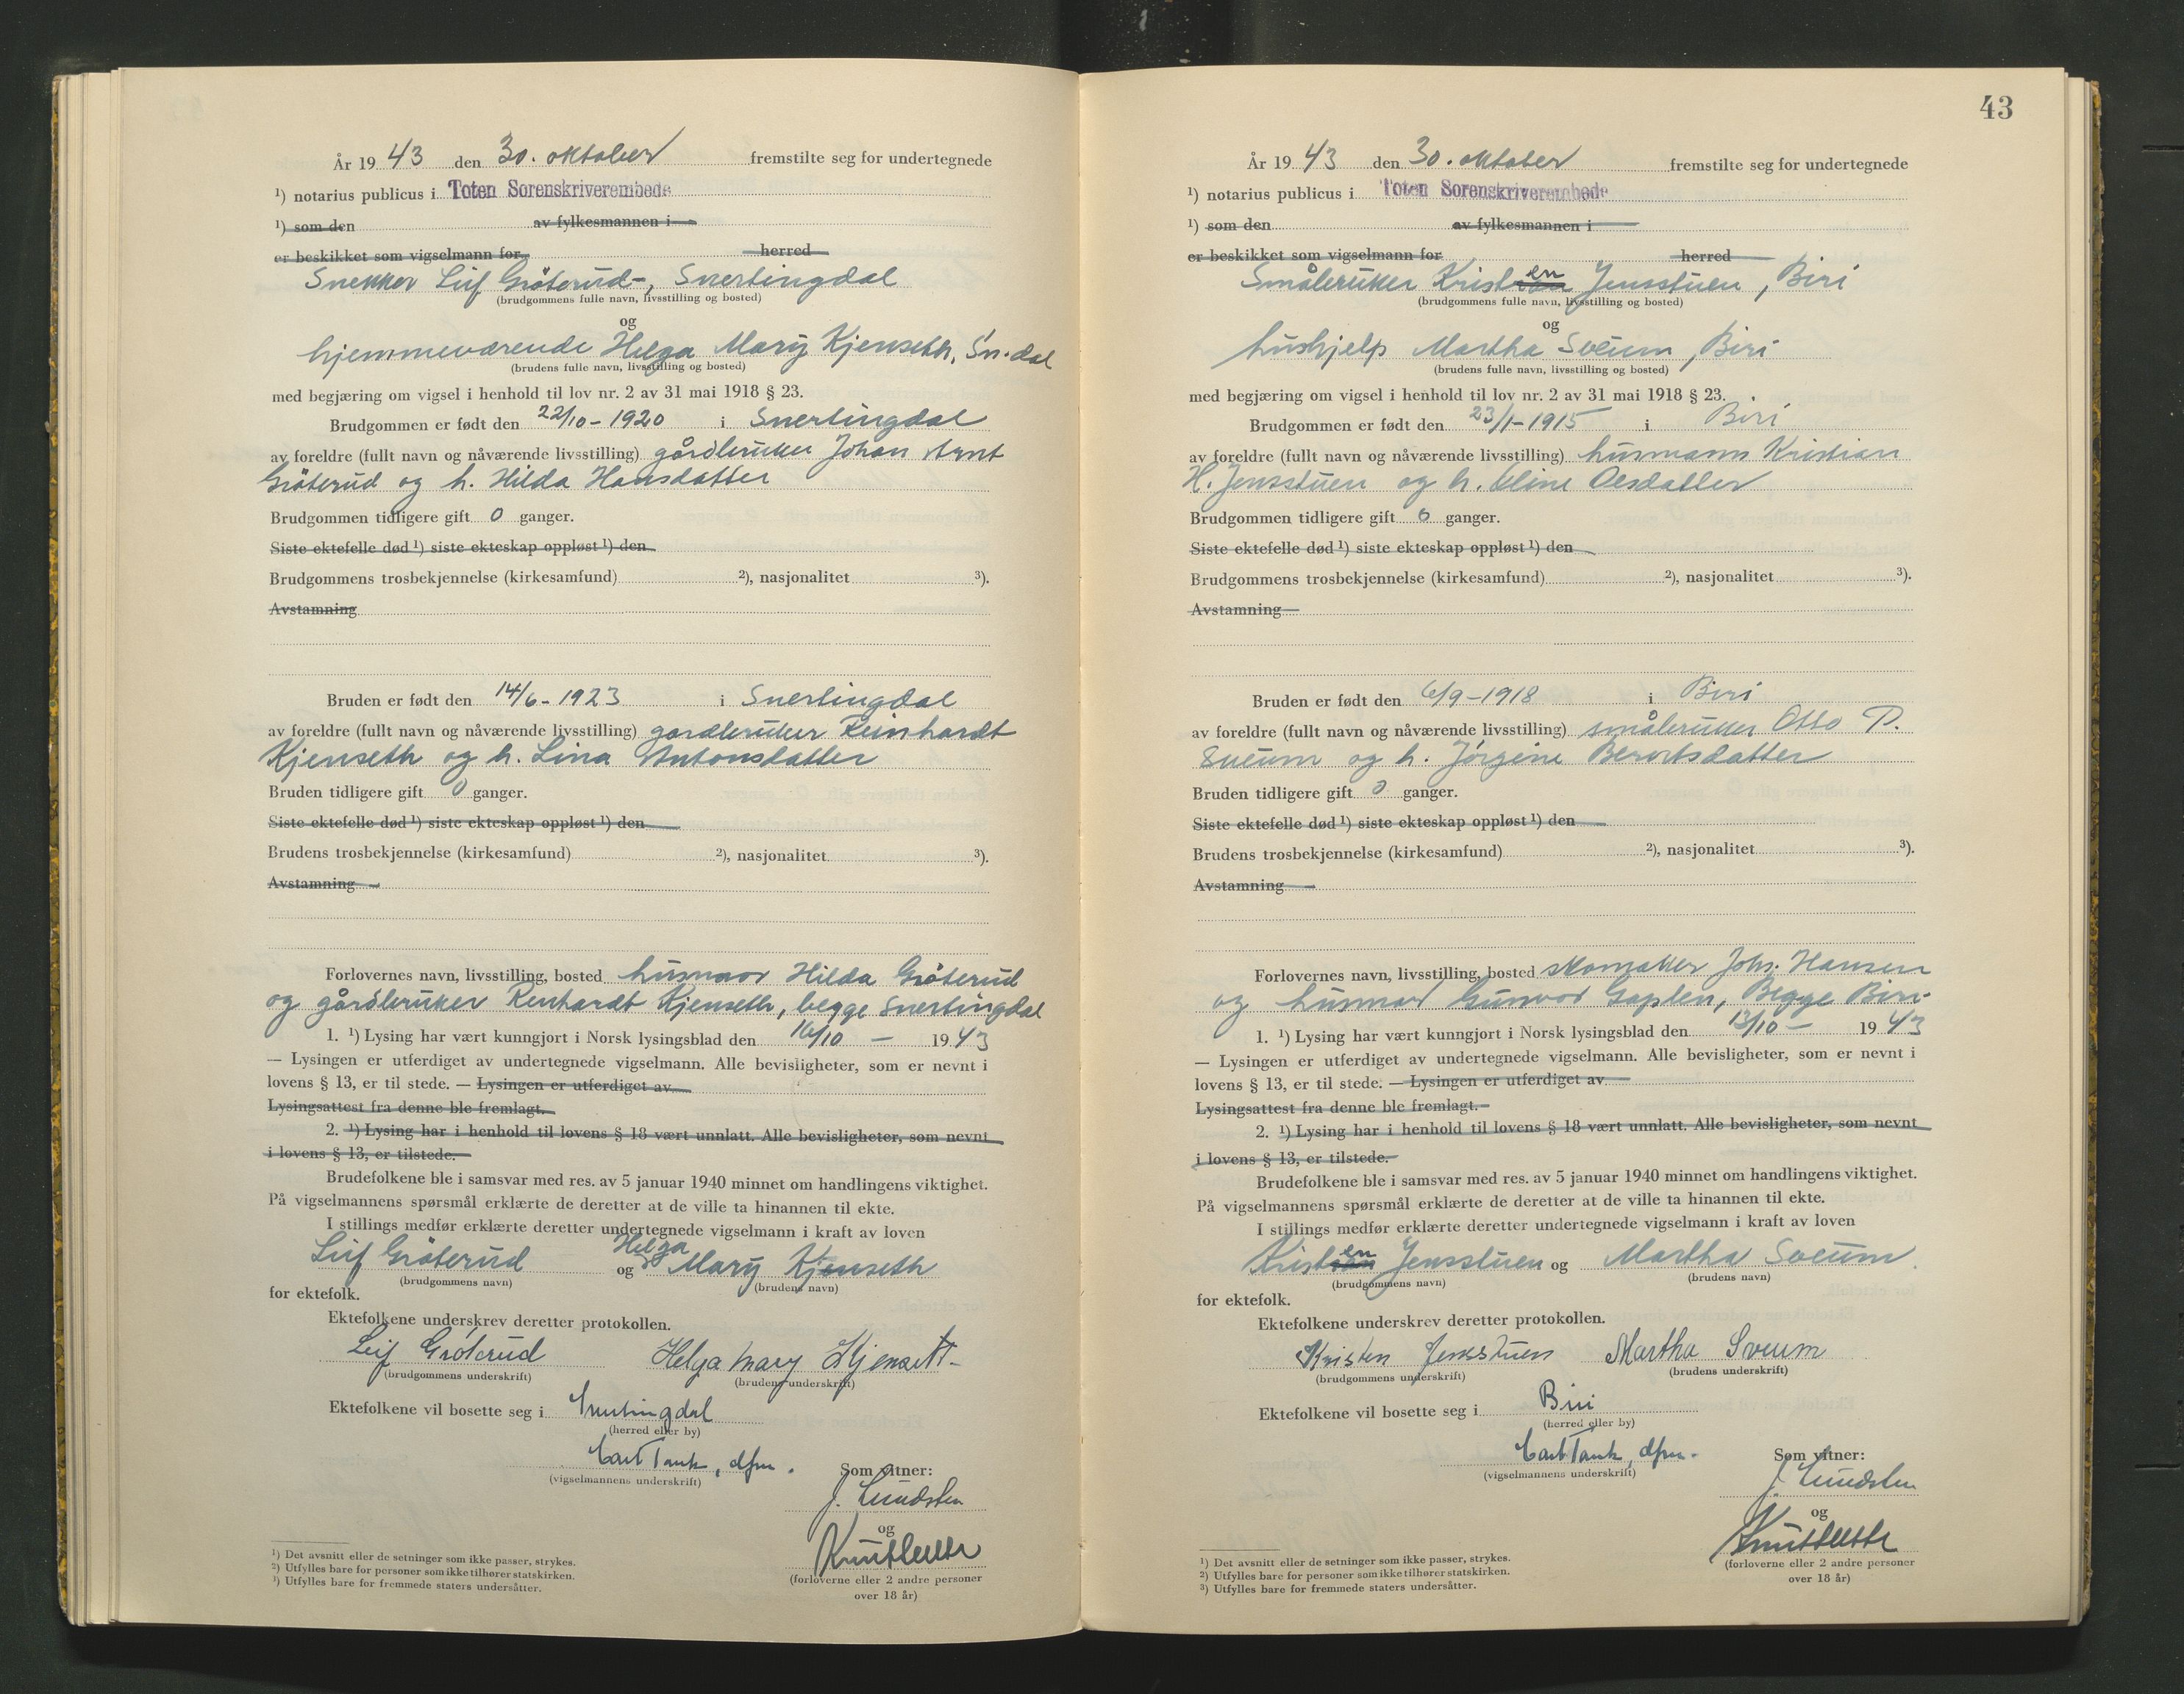 År 19 43 den 30. oktober fremstilte seg for undertegnede
¹) notarius publicus i Toten Sorenskriverembede
¹) som den av fylkesmannen i
er beskikket som vigselmann for herred
Snekker Leif Gröterud, Snertingdal
(brudgommens fulle navn, livsstilling og bosted)
og
hjemmeværende Helga Mary Kjenseth, Sn.dal
(brudens fulle navn, livsstilling og bosted)
med begjæring om vigsel i henhold til lov nr. 2 av 31 mai 1918 § 23.
Brudgommen er født den 22/10-1920 i Snertingdal
av foreldre (fullt navn og nåværende livsstilling) gårdbruker Johan Arnt
Gröterud og h. Hilda Hansdatter
Brudgommen tidligere gift 0 ganger.
Siste ektefelle død ¹) siste ekteskap oppløst ¹) den
Brudgommens trosbekjennelse (kirkesamfund) ²), nasjonalitet ³).
Avstamning
Bruden er født den 14/6-1923 i Snertingdal
av foreldre (fullt navn og nåværende livsstilling) gardbruker Reinhardt
Kjenseth og h. Lina Antonsdatter
Bruden tidligere gift 0 ganger.
Siste ektefelle død ¹) siste ekteskap oppløst ¹) den
Brudens trosbekjennelse (kirkesamfund) ²), nasjonalitet ³).
Avstamning
Forlovernes navn, livsstilling, bosted husmor Hilda Gröterud
og gårdbruker Renhardt Kjenseth, begge Snertingdal
1. ¹) Lysing har vært kunngjort i Norsk lysingsblad den 16/10 – 19 43
— Lysingen er utferdiget av undertegnede vigselmann. Alle bevisligheter, som er nevnt i
lovens § 13, er til stede. — Lysingen er utferdiget av
Lysingsattest fra denne ble fremlagt.
2. ¹) Lysing har i henhold til lovens § 18 vært unnlatt. Alle bevisligheter, som nevnt
i lovens § 13, er tilstede.
Brudefolkene ble i samsvar med res. av 5 januar 1940 minnet om handlingens viktighet.
På vigselmannens spørsmål erklærte de deretter at de ville ta hinannen til ekte.
I stillings medfør erklærte deretter undertegnede vigselmann i kraft av loven
Leif Gröterud og Helga Mary Kjenseth
(brudgommens navn) (brudens navn)
for ektefolk.
Ektefolkene underskrev deretter protokollen.
Leif Gröterud Helga Mary Kjenseth
(brudgommens underskrift) (brudens underskrift)
Ektefolkene vil bosette seg i Snertingdal
(herred eller by)
Carl Tank, dfm.
(vigselmannens underskrift)
Som vitner:
J. Lundsten
og
(forloverne eller 2 andre personer
over 18 år)
¹) Det avsnitt eller de setninger som ikke passer, strykes.
²) Utfylles bare for personer som ikke tilhører statskirken.
³) Utfylles bare for fremmede staters undersåtter.
43
År 19 43 den 30. oktober fremstilte seg for undertegnede
¹) notarius publicus i Toten Sorenskriverembede
¹) som den av fylkesmannen i
er beskikket som vigselmann for herred
Småbruker Kristen Jensstuen, Biri
(brudgommens fulle navn, livsstilling og bosted)
og
hushjelp Martha Sveum, Biri
(brudens fulle navn, livsstilling og bosted)
med begjæring om vigsel i henhold til lov nr. 2 av 31 mai 1918 § 23.
Brudgommen er født den 23/1-1915 i Biri
av foreldre (fullt navn og nåværende livsstilling) husmann Kristian
H. Jensstuen og h. Eline Olesdatter
Brudgommen tidligere gift 0 ganger.
Siste ektefelle død ¹) siste ekteskap oppløst ¹) den
Brudgommens trosbekjennelse (kirkesamfund) ²), nasjonalitet ³).
Avstamning
Bruden er født den 6/9-1918 i Biri
av foreldre (fullt navn og nåværende livsstilling) småbruker Otto P.
Sveum og h. Jörgine Berntsdatter
Bruden tidligere gift 0 ganger.
Siste ektefelle død ¹) siste ekteskap oppløst ¹) den
Brudens trosbekjennelse (kirkesamfund) ²), nasjonalitet ³).
Avstamning
Forlovernes navn, livsstilling, bosted skomaker Johs. Hansen
og husmor Gunvor Gaplen, Begge Biri
1. ¹) Lysing har vært kunngjort i Norsk lysingsblad den 13/10 – 19 43
— Lysingen er utferdiget av undertegnede vigselmann. Alle bevisligheter, som er nevnt i
lovens § 13, er til stede. — Lysingen er utferdiget av
Lysingsattest fra denne ble fremlagt.
2. ¹) Lysing har i henhold til lovens § 18 vært unnlatt. Alle bevisligheter, som nevnt
i lovens § 13, er tilstede.
Brudefolkene ble i samsvar med res. av 5 januar 1940 minnet om handlingens viktighet.
På vigselmannens spørsmål erklærte de deretter at de ville ta hinannen til ekte.
I stillings medfør erklærte deretter undertegnede vigselmann i kraft av loven
Kristen Jensstuen og Martha Sveum.
(brudgommens navn) (brudens navn)
for ektefolk.
Ektefolkene underskrev deretter protokollen.
Kristen Jensstuen Martha Sveum
(brudgommens underskrift) (brudens underskrift)
Ektefolkene vil bosette seg i Biri
(herred eller by)
Carl Tank, dfm.
(vigselmannens underskrift)
Som vitner:
J. Lundsten
og
(forloverne eller 2 andre personer
over 18 år)
¹) Det avsnitt eller de setninger som ikke passer, strykes.
²) Utfylles bare for personer som ikke tilhører statskirken.
³) Utfylles bare for fremmede staters undersåtter.